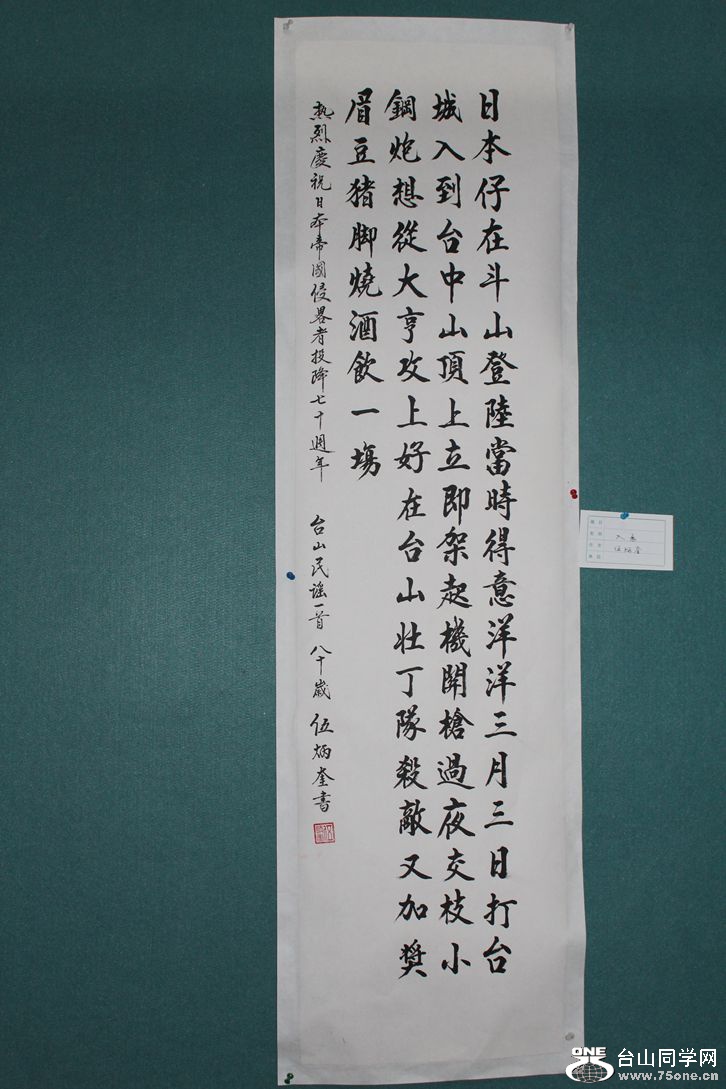 日本仔在斗山登陸當時得意洋洋三月三日打台
城入到台中山頂上立即架起機関槍過夜交枝小
鋼炮想從大亨攻上好在台山壮丁隊殺敵又加奨
眉豆猪脚燒酒飲一塲
热烈慶祝日本帝國侵畧者投降七十週年 台山民謡一首 八十歲 伍炳奎書
伍炳奎
ONE
台山同学网
www.75one.cn